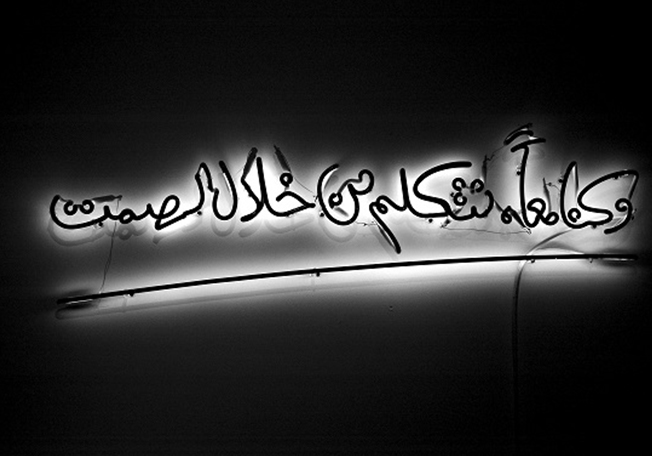 وكنا معاً نتكلم من خلال الصمت